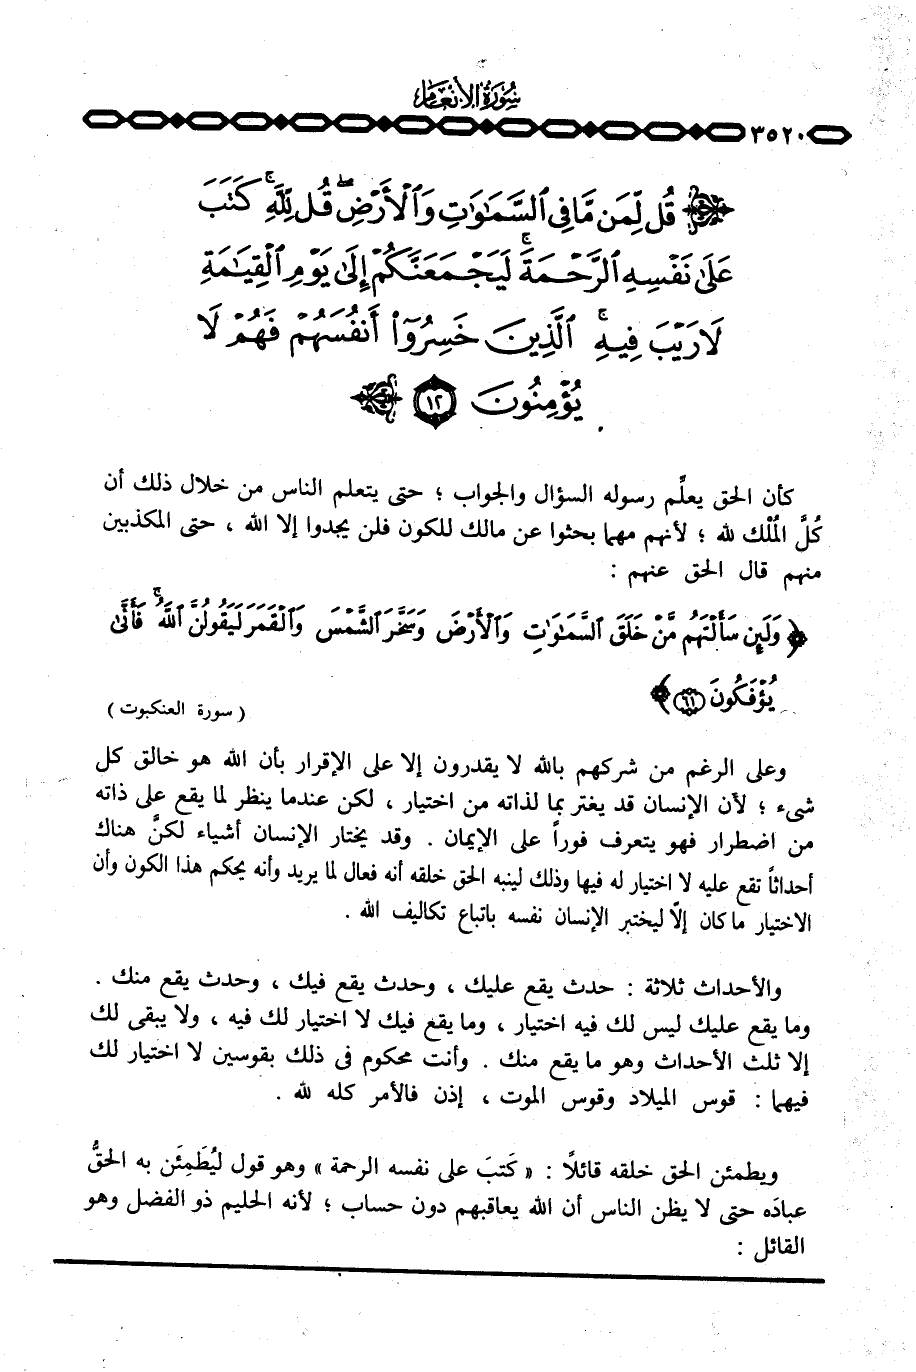 سورة الأنعام
٣٥٢٠
قُل لِّمَن مَّا فِى ٱلسَّمَٰوَٰتِ وَٱلْأَرْضِ ۖ قُل لِّلَّهِ ۚ كَتَبَ
عَلَىٰ نَفْسِهِ ٱلرَّحْمَةَ ۚ لَيَجْمَعَنَّكُمْ إِلَىٰ يَوْمِ ٱلْقِيَٰمَةِ
لَا رَيْبَ فِيهِ ۚ ٱلَّذِينَ خَسِرُوٓا۟ أَنفُسَهُمْ فَهُمْ لَا
يُؤْمِنُونَ ١٢
كأن الحق يعلِّم رسوله السؤال والجواب ؛ حتى يتعلم الناس من خلال ذلك أن
كُلَّ المُلْك لله ؛ لأنهم مهما بحثوا عن مالك للكون فلن يجدوا إلا الله ، حتى المكذبين
منهم قال الحق عنهم :
﴿ وَلَئِن سَأَلْتَهُم مَّنْ خَلَقَ ٱلسَّمَٰوَٰتِ وَٱلْأَرْضَ وَسَخَّرَ ٱلشَّمْسَ وَٱلْقَمَرَ لَيَقُولُنَّ ٱللَّهُ ۖ فَأَنَّىٰ
يُؤْفَكُونَ ٦١ ﴾
( سورة العنكبوت )
وعلى الرغم من شركهم بالله لا يقدرون إلا على الإقرار بأن الله هو خالق كل
شىء ؛ لأن الإنسان قد يغتر بما لذاته من اختيار ، لكن عندما ينظر لما يقع على ذاته
من اضطرار فهو يتعرف فوراً على الإيمان . وقد يختار الإنسان أشياء لكنَّ هناك
أحداثاً تقع عليه لا اختيار له فيها وذلك لينبه الحق خلقه أنه فعال لما يريد وأنه يحكم هذا الكون وأن
الاختيار ما كان إلّا ليختبر الإنسان نفسه باتباع تكاليف الله .
والأحداث ثلاثة : حدث يقع عليك ، وحدث يقع فيك ، وحدث يقع منك .
وما يقع عليك ليس لك فيه اختيار ، وما يقع فيك لا اختيار لك فيه ، ولا يبقى لك
إلا ثلث الأحداث وهو ما يقع منك . وأنت محكوم فى ذلك بقوسين لا اختيار لك
فيهما : قوس الميلاد وقوس الموت ، إذن فالأمر كله لله .
ويطمئن الحق خلقه قائلًا : « كَتبَ على نفسه الرحمة » وهو قول ليُطَمِئَن به الحقُّ
عبادَه حتى لا يظن الناس أن الله يعاقبهم دون حساب ؛ لأنه الحليم ذو الفضل وهو
القائل :